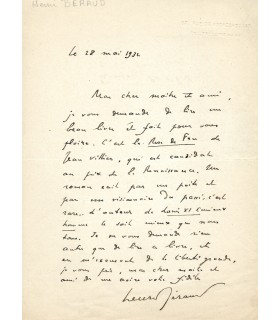 Henri BÉRAUD
le 28 mai 1932
Mon cher maître et ami,
je vous demande de lire un
beau livre et fait pour vous
plaire. C'est la Rose de Fer de
Jean villier, qui est candidat
au prix de la Renaissance. Un
roman écrit par un poète et
par un visionnaire du passé, c'est
rare. L'auteur de Louis XI curieux
homme le sait mieux que nous
tous. Je ne vous demande rien
autre que de lire ce livre, et
en m'excusant de la liberté grande,
je vous prie, mon cher maître et
ami de me croire votre fidèle
Henri Béraud